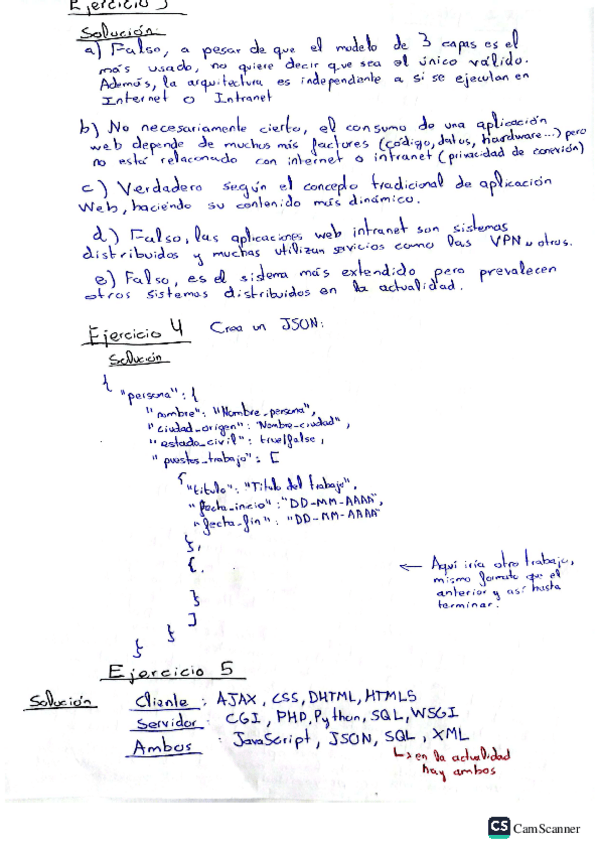 Ejercicio 3
Solución:
a) Falso, a pesar de que el modelo de 3 capas es el
más usado, no quiere decir que sea el único válido.
Además, la arquitectura es independiente a si se ejecutan en
Internet o Intranet
b) No necesariamente cierto, el consumo de una aplicación
web depende de muchos más factores (código, datos, hardware...) pero
no está relaconado con internet o intranet (privacidad de conexión)
c) Verdadero según el concepto tradicional de aplicación
Web, haciendo su contenido más dinámico.
d) Falso, las aplicaciones web intranet son sistemas
distribuidos y muchas utilizan servicios como las VPN u otros.
e) Falso, es el sistema más extendido pero prevalecen
otros sistemas distribuidos en la actualidad.
Ejercicio 4 Crea un JSON:
Solución
{
"persona": {
"nombre": "Nombre_persona",
"ciudad_origen": "Nombre_ciudad",
"estado_civil": true/false,
"puestos_trabajo": [
{
"titulo": "Titulo del trabajo",
"fecha_inicio": "DD-MM-AAAA",
"fecha_fin": "DD-MM-AAAA"
},
{.
← Aquí iría otro trabajo,
mismo formato que el
anterior y así hasta
terminar.
}
]
}
}
Ejercicio 5
Solución Cliente: AJAX, CSS, DHTML, HTML5
Servidor: CGI, PHP, Python, SQL, WSGI
Ambos: JavaScript, JSON, SQL, XML
↳ en la actualidad
hay ambos
CS CamScanner